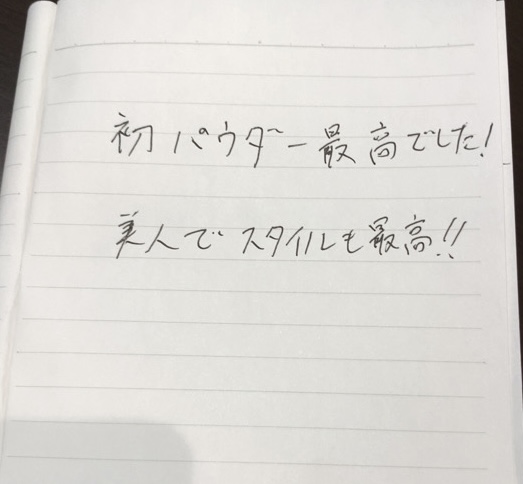 初パウダー最高でした!
美人でスタイルも最高!!